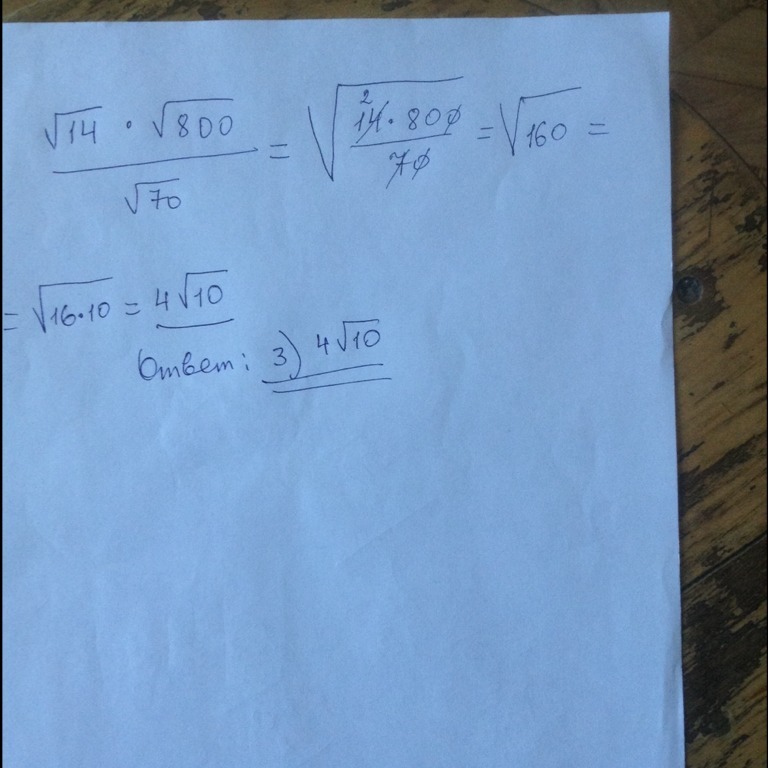 √14 · √800 / √70 = √(14 · 800 / 70) 2 = √160 =
= √16·10 = 4√10
Ответ: 3) 4√10